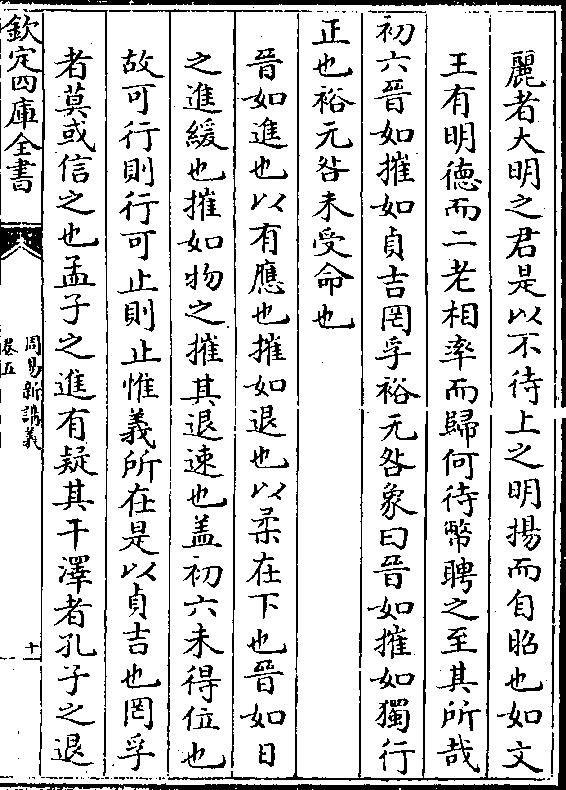 麗者大明之君是以不待上之明揚而自昭也如文
王有明德而二老相率而歸何待幣聘之至其所哉
初六晉如摧如貞吉罔孚裕无咎象曰晉如摧如獨行
正也裕无咎未受命也
晉如進也以有應也摧如退也以柔在下也晉如日
之進緩也摧如物之摧其退速也盖初六未得位也
故可行則行可止則止惟義所在是以貞吉也罔孚
者莫或信之也孟子之進有疑其干澤者孔子之退
欽定四庫全書
周易新講義
卷五
十